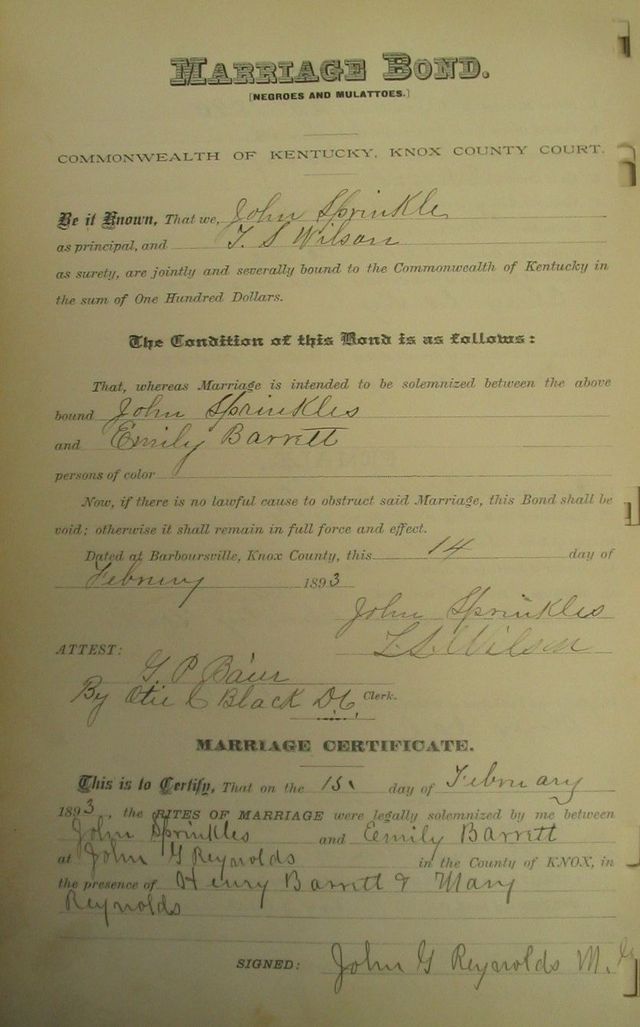 MARRIAGE BOND.
[NEGROES AND MULATTOES.]
COMMONWEALTH OF KENTUCKY, KNOX COUNTY COURT.
Be it Known, That we, John Sprinkle
as principal, and T. S Wilson
as surety, are jointly and severally bound to the Commonwealth of Kentucky in
the sum of One Hundred Dollars.
The Condition of this Bond is as follows:
That, whereas Marriage is intended to be solemnized between the above
bound John Sprinkles
and Emily Barrett
persons of color
Now, if there is no lawful cause to obstruct said Marriage, this Bond shall be
void; otherwise it shall remain in full force and effect.
Dated at Barboursville, Knox County, this 14 day of
Februry 1893
John Sprinkles
T. S. Wilson
ATTEST:
G. P. Bain
By Otie C Black D.C. Clerk.
MARRIAGE CERTIFICATE.
This is to Certify, That on the 15 day of February
1893, the RITES OF MARRIAGE were legally solemnized by me between
John Sprinkles and Emily Barrett
at John G Reynolds in the County of KNOX, in
the presence of Henry Barrett & Mary
Reynolds
SIGNED: John G Reynolds M. G